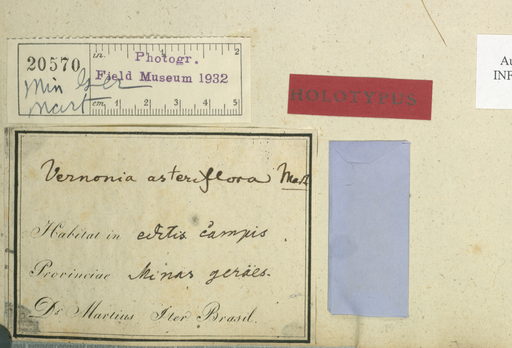 20570
in. 1 2
Photogr.
Field Museum 1932
Min Ger
Mart
cm 1 2 3 4 5
HOLOTYPUS
Au
INF
Vernonia asteriflora Mart
Habitat in editis campis.
Provinciae Minas geräes.
Dr Martius Iter Brasil.